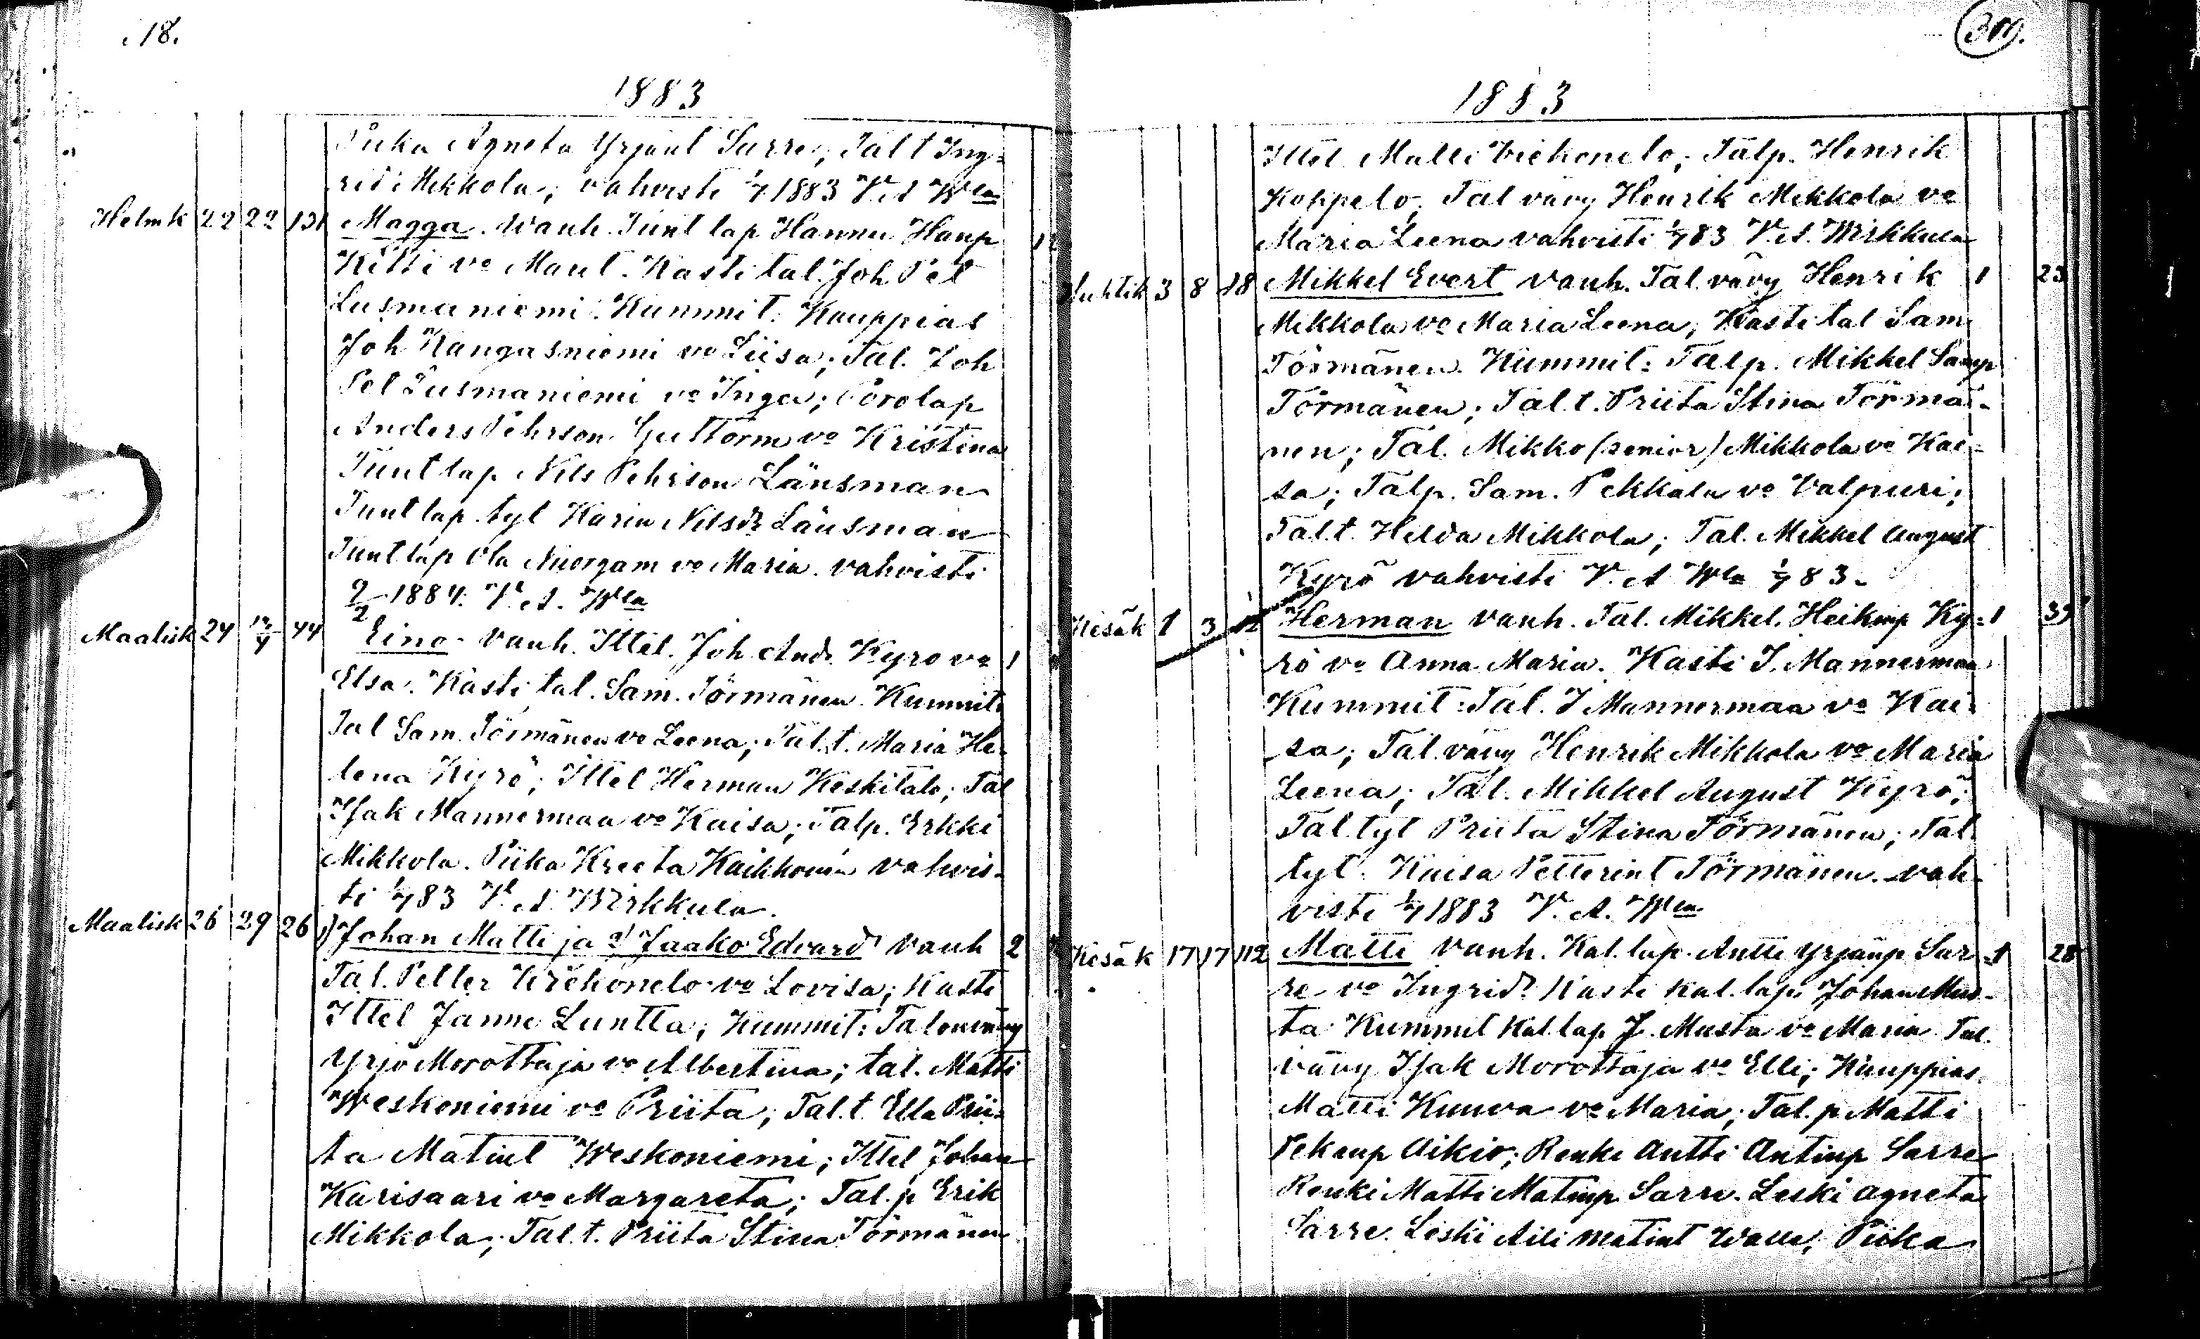 18.
1883
Piika Agneta Yrjänt Sarre; Tal t Ing-
rid Mikkola; vahvisti 1/7 1883 V. A. Wla
Helmk 22 22 131 Magga. Wanh. Tunt lap Hannu Hanp
Kitti vo Marit. Kasti tal. Joh Pet
Lusmaniemi. Kummit: Kauppias
Joh Kangasniemi vo Liisa; Tal. Joh
Pet Lusmaniemi vo Inga; Porolap
Anders Pehrson Guttorm vo Kristina
Tunt lap. Nils Pehrson Länsman
Tunt lap. tyt Karin Nilsdr Länsman
Tunt lap Ola Niorgam vo Maria. vahvisti
2/2 1884. V. A. Wla
Maalisk 24 12/4 44 Eino. vanh. Ittel. Joh. And. Kyrö vo 1
Elsa. Kasti tal. Sam. Törmänen. Kummit:
Tal Sam. Törmänen vo Leena; Tal. t. Maria He-
lena Kyrö; Ittel Herman Keskitalo; Tal
Isak Mannermaa vo Kaisa; Talp. Erkki
Mikkola. Piika Kreeta Kaikkonen vahvis-
ti 1/7 83 V. A. Wirkkula.
Maalisk 26 29 26 1) Johan Matti ja 2) Jaako Edvard vanh 2
Tal. Petter Wiehonelo vo Lovisa; Kasti
Ittel Janne Luntta; Kummit: Talonvävy
Yrjö Morottaja vo Albertina; tal. Matti
Weskoniemi vo Priita; Tal. t. Ella Prii-
ta Matint Weskoniemi; Ittel Johan
Karisaari vo Margareta; Tal. p Erik
Mikkola; Tal. t. Priita Stina Törmänen
309.
1883
Ittel. Matti Viehonelo; Talp. Henrik
Koppelo; Tal vävy Henrik Mikkola vo
Maria Leena vahvisti 1/7 83 V. A. Wirkkula
Huhtik 3 8 18 Mikkel Evert vanh. Tal. vävy Henrik 1 23
Mikkola vo Maria Leena; Kasti tal Sam.
Törmänen. Kummit: Talp. Mikkel Samp
Törmänen; Tal. t. Priita Stina Törmä-
nen; Tal. Mikko (senior) Mikkola vo Kai-
sa; Talp. Sam. Pekkala vo Valpuri;
Tal t. Hilda Mikkola; Tal. Mikkel August
Kyrö vahvisti V. A Wla 1/7 83.
Kesäk 1 3 12 Herman vanh. Tal. Mikkel. Heikinp Ky- 1 39
rö vo Anna Maria. Kasti I. Mannermaa
Kummit: Tal. I Mannermaa vo Kai-
sa; Tal. vävy Henrik Mikkola vo Maria
Leena; Tal. Mikkel August Kyrö;
Tal tyt Priita Stina Törmänen; Tal
tyt. Kaisa Petterint Törmänen. vah-
visti 1/7 1883 V. A. Wla
Kesäk 17 17 112 Matti vanh. Kal. lap. Antti Yrjänp Sar- 1 28
re vo Ingrid. Kasti kal. lap. Johan Mus-
ta Kummit Kal. lap J. Musta vo Maria Tal.
vävy Isak Morottaja vo Elli; Kauppias
Matti Kuuva vo Maria; Tal. p. Matti
Pekanp Aikio; Renki Antti Antinp Sarre
Renki Matti Matinp Sarre. Leski Agneta
Sarre. Leski Aili Matint Walle; Piika